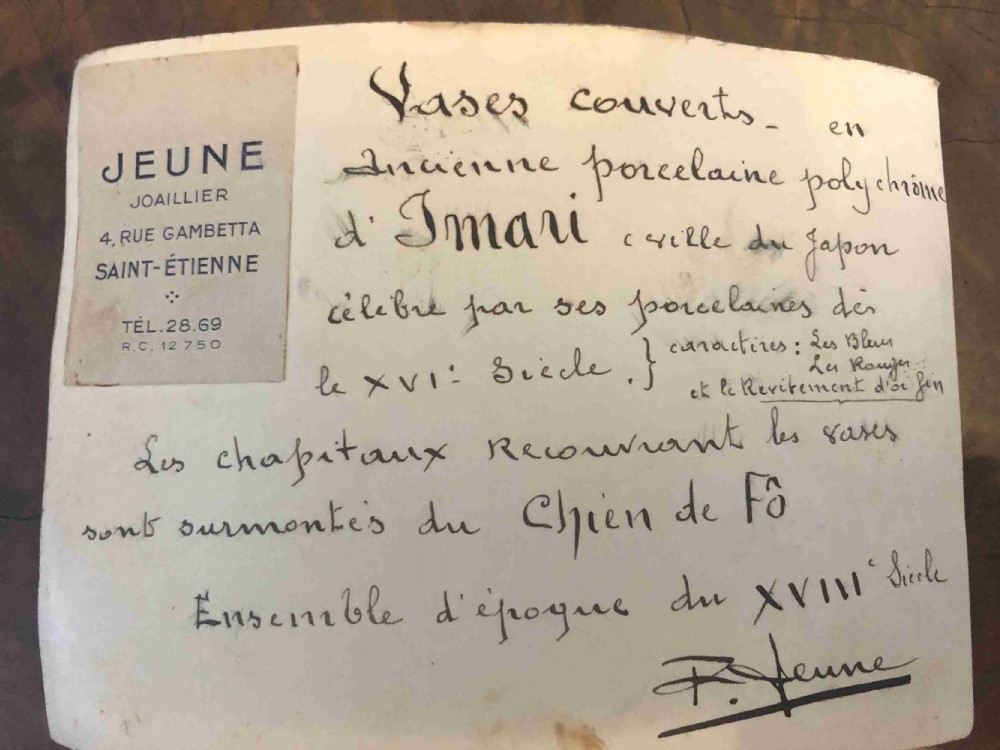 JEUNE
JOAILLIER
4, RUE GAMBETTA
SAINT-ÉTIENNE
TÉL. 28.69
R.C. 12 750
Vases couverts - en
Ancienne porcelaine polychrôme
d'Imari (ville du Japon
célèbre par ses porcelaines dès
le XVIe Siècle.} caractères : Les Bleus
Les Rouges
et le Revêtement d'or fin
Les chapitaux recouvrant les vases
sont surmontés du Chien de Fô
Ensemble d'époque du XVIIIe Siècle
P. Jeune